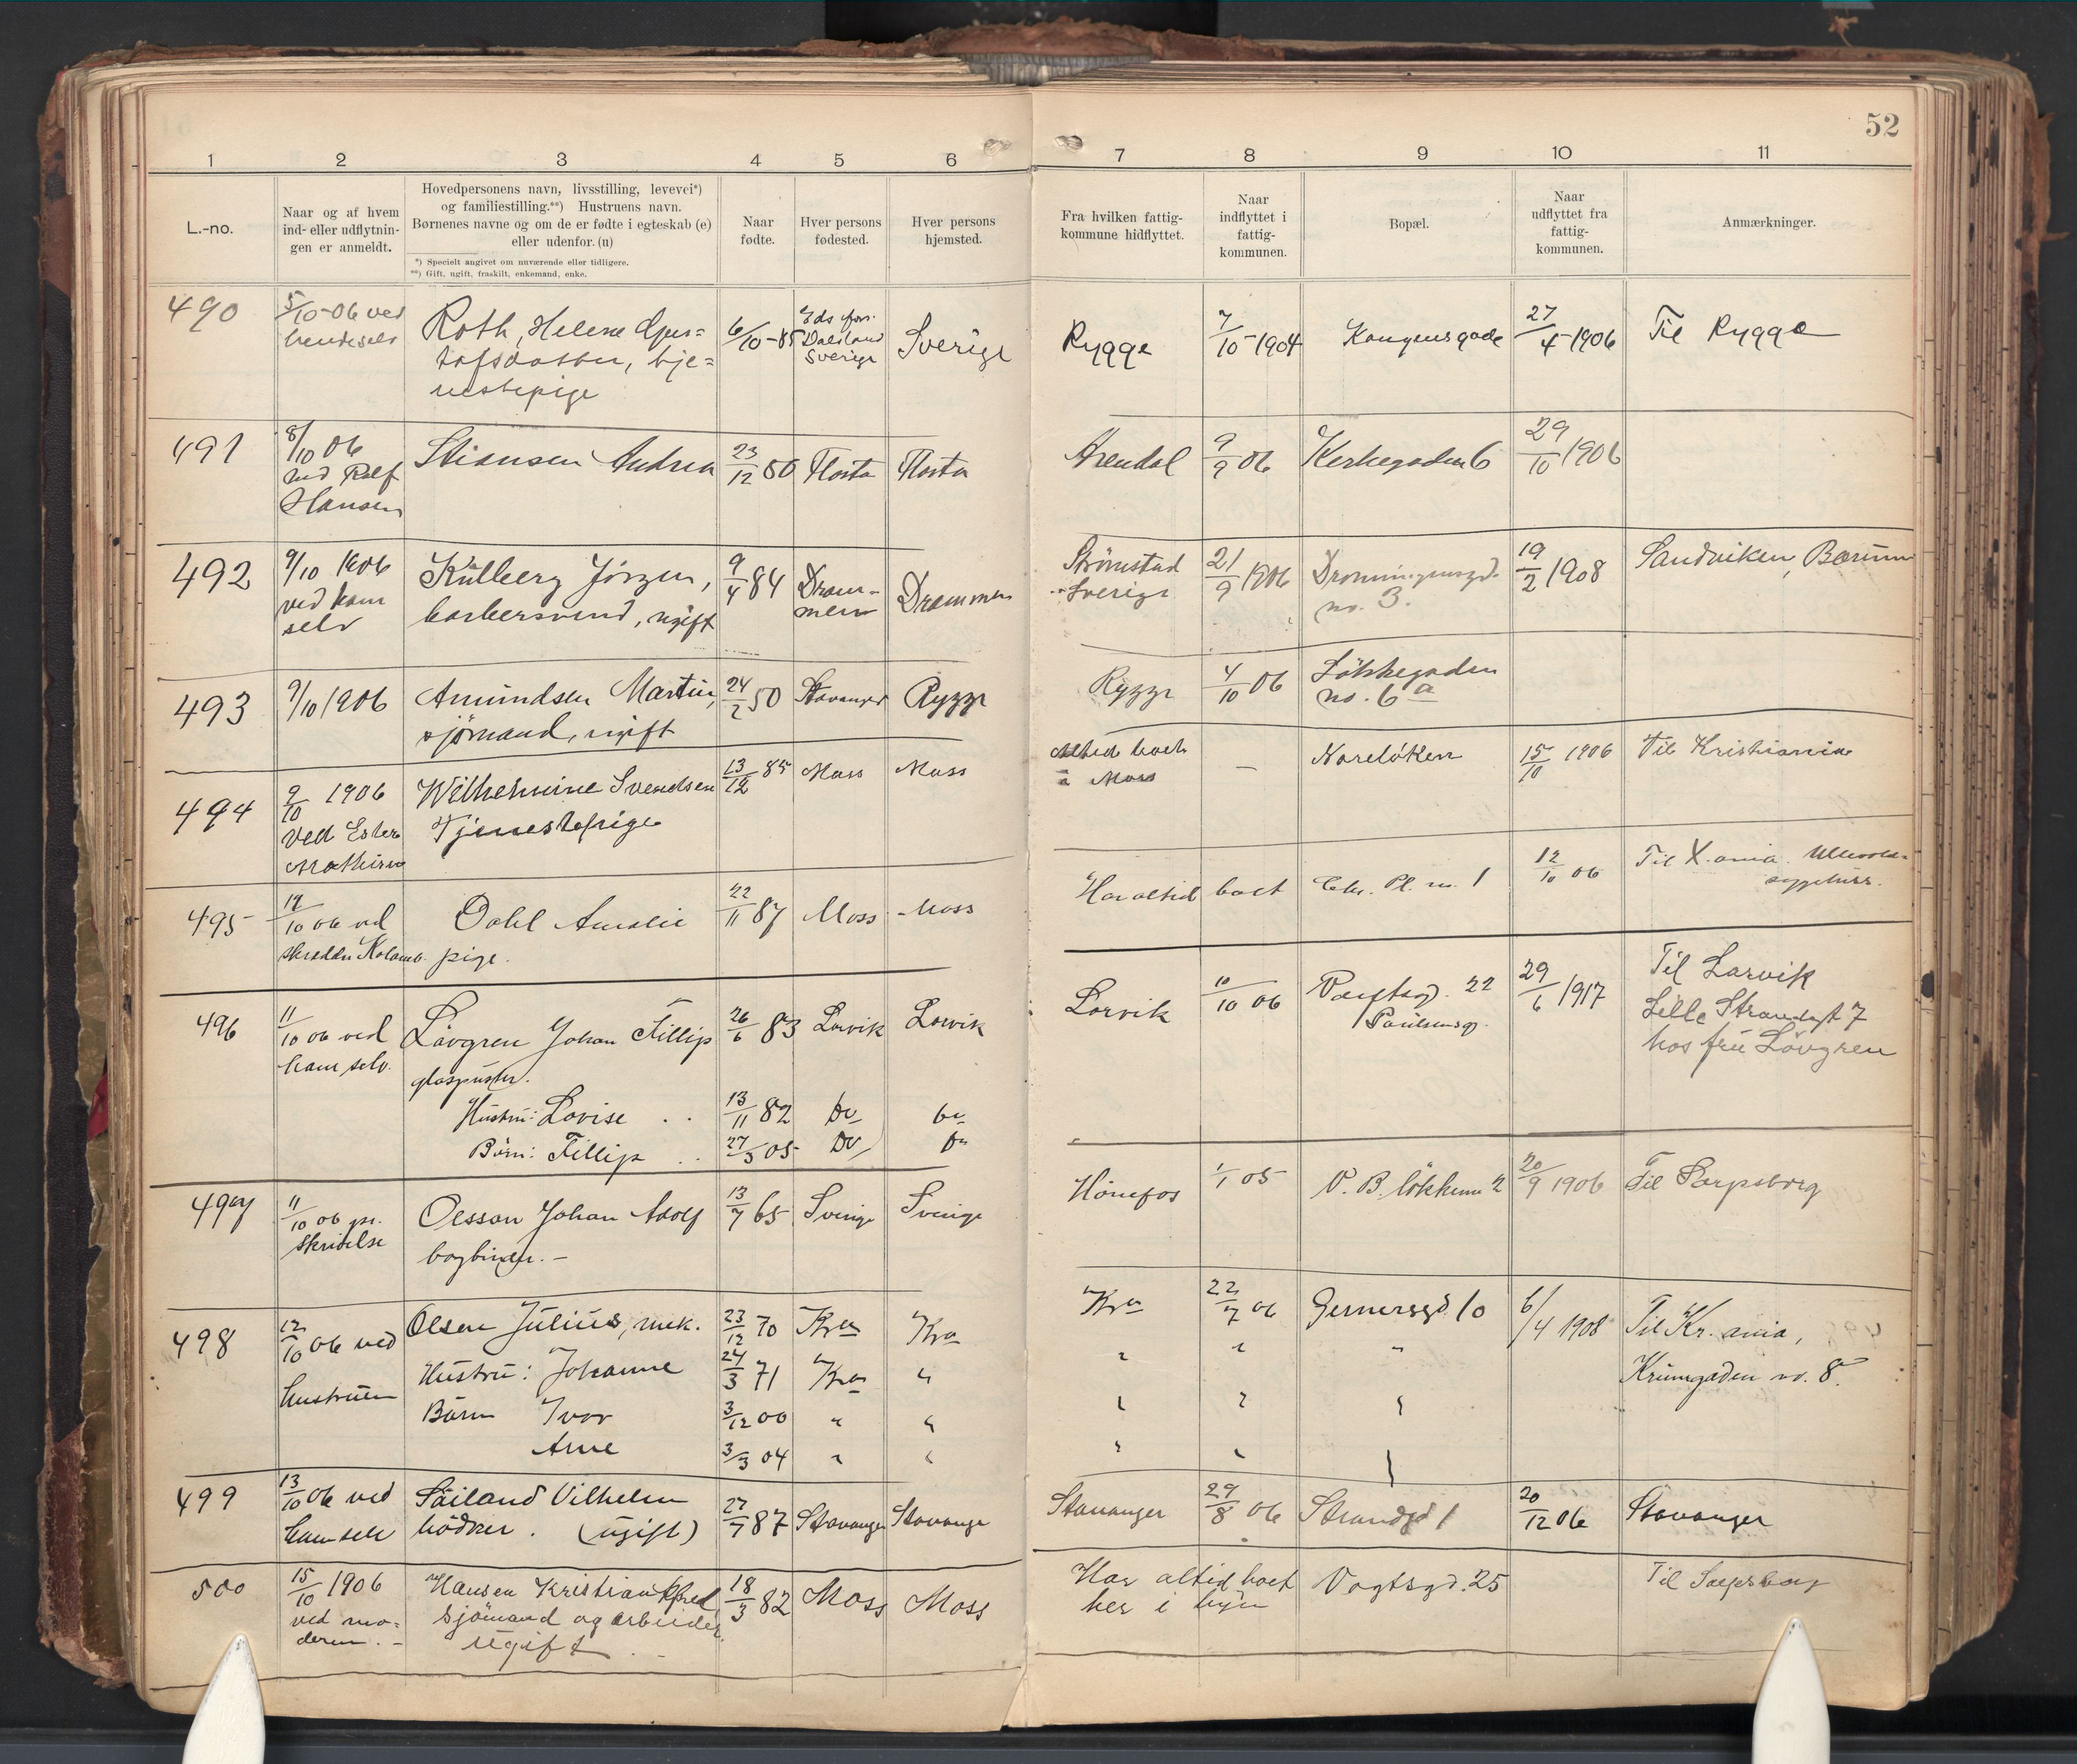 52
1 2 3 4 5 6 7 8 9 10 11
L.-no.
Naar og af hvem
ind- eller udflytnin-
gen er anmeldt.
Hovedpersonens navn, livsstilling, levevei*)
og familiestilling.**) Hustruens navn.
Børnenes navne og om de er fødte i egteskab (e)
eller udenfor. (u)
*) Specielt angivet om nuværende eller tidligere.
**) Gift, ugift, fraskilt, enkemand, enke.
Naar
fødte.
Hver persons
fødested.
Hver persons
hjemsted.
Fra hvilken fattig-
kommune hidflyttet.
Naar
indflyttet i
fattig-
kommunen.
Bopæl.
Naar
udflyttet fra
fattig-
kommunen.
Anmærkninger.
490
5/10-06 ved
hendeselv
Roth, Helene Gus=
tafsdatter, tje=
nestepige
6/10-85
Dalsland
Sverige
Sverige
Rygge
7/10-1904
Kongensgade
27/4-1906
Til Rygge
491
8/10 06
ved Rolf
Hansen
Stiansen Andrea
23/12 80
Flosta
Flosta
Arendal
9/9 06
Kirkegaden 6
29/10 1906
492
9/10 1906
ved ham
selv
Külberg Jörgen,
barbersvend, ugift
9/4 84
Dram-
men
Drammen
Strömstad
Sverige
21/9 1906
Dronningensgd.
no. 3.
19/2 1908
Sandviken, Bærum
493
9/10 1906
Amundsen Martin,
sjömand, ugift
24/2 50
Stavanger
Rygge
Rygge
4/10 06
Løkkegaden
no. 6 a
494
9/10 1906
Ved Ester
Mathisen
Wilhelmine Svendsen
Tjenestepige
13/12 85
Moss
Moss
Altid boet
i Moss
—
Noreløkken
15/10 1906
Til Kristiania
495
12/10 06 ved
Dahl Amalie
pige.
22/11 87
Moss
Moss
Har altid boet
Chr. Pl. no. 1
12/10 06
Til X.ania. Ullevold-
sygehus.
496
11/10 06 ved
ham selv.
Lövgren Johan Fillip
glaspuster.
26/6 83
Larvik
Larvik
Hustru: Lovise
13/11 82
Do
Do
Börn: Fillip
27/3 05
Do
Do
Larvik
10/10 06
Vogtsgd. 22
Paulsensg.
29/6 1917
Til Larvik
Lille Strandgt 7
hos frü Lövgren
497
11/10 06 pr.
skrivelse
Olsson Johan Adolf
bogbinder. —
13/7 65
Sverige
Sverige
Hönefos
1/1 05
V. B. lökken 2
20/9 1906
Til Sarpsborg
498
12/10 06 ved
hustruen
Olsen Julius, mek.
23/12 70
Kra
Kra
Hustru: Johanne
24/3 71
Kra
"
Börn Ivar
3/12 00
"
"
Arne
3/3 04
"
"
Kra
22/7 06
Gernersgd. 10
6/4 1908
Til Kr. ania,
Krumgaden no. 8.
499
13/10 06 ved
ham selv
Såiland Vilhelm
bödker. (ugift)
27/7 87
Stavanger
Stavanger
Stavanger
29/8 06
Strandgd 1
20/12 06
Stavanger
500
15/10 1906
ved mo-
deren. —
Hansen Kristian Alfred
sjömand og arbeider
ugift
18/3 82
Moss
Moss
Har altid boet
her i byen
Vogtsgd. 25
Til Sarpsborg